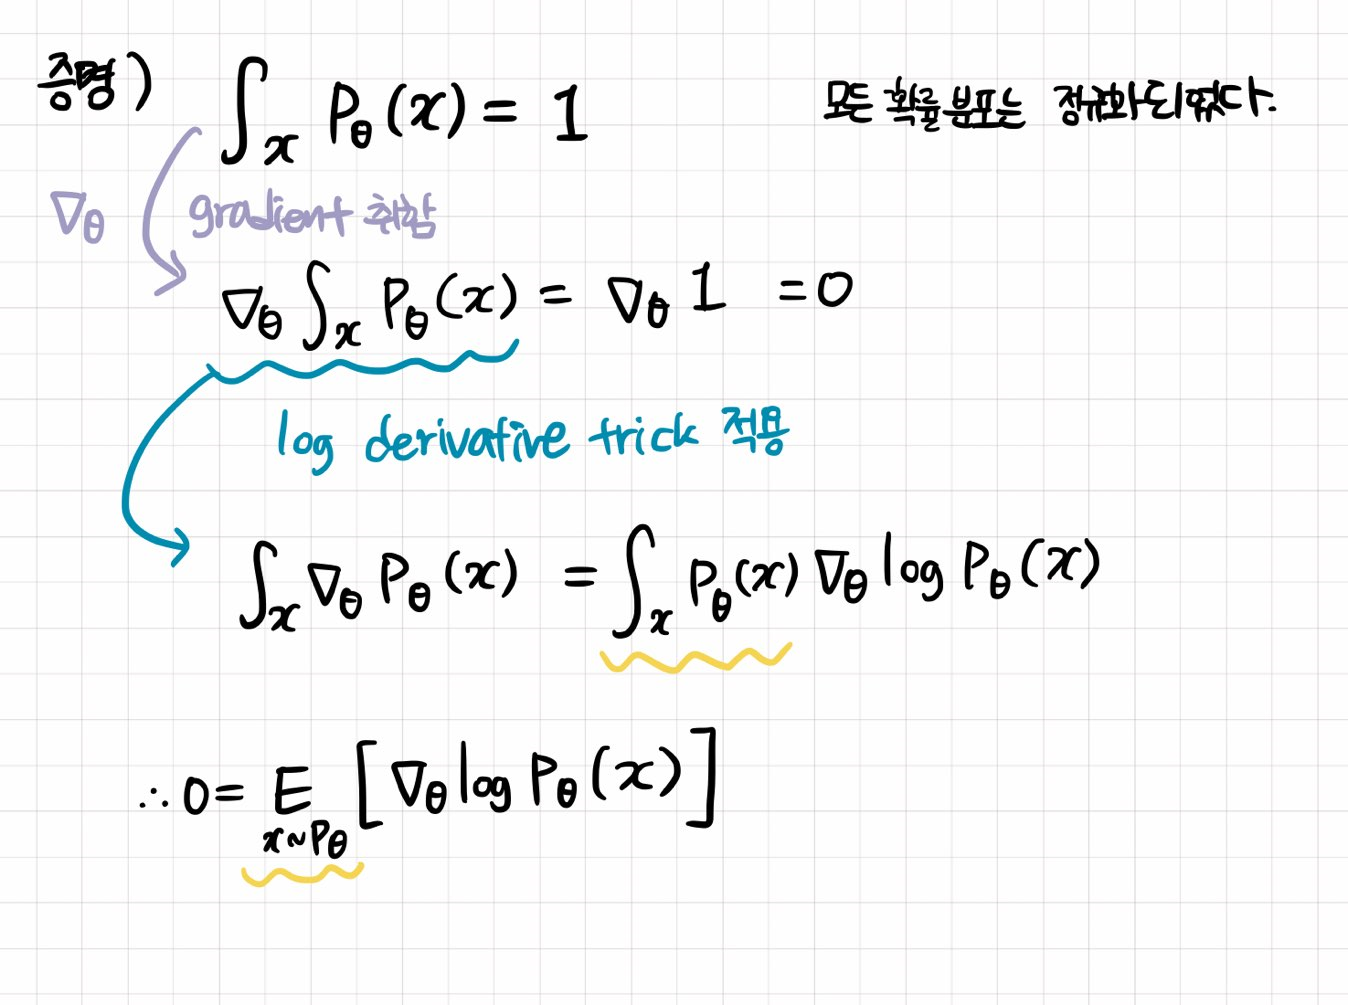 증명) ∫ₓ P_θ(x) = 1 모든 확률분포는 정규화되었다.
∇_θ gradient 취함
∇_θ ∫ₓ P_θ(x) = ∇_θ 1 = 0
log derivative trick 적용
∫ₓ ∇_θ P_θ(x) = ∫ₓ P_θ(x) ∇_θ log P_θ(x)
∴ 0 = E [∇_θ log P_θ(x)]
x~P_θ